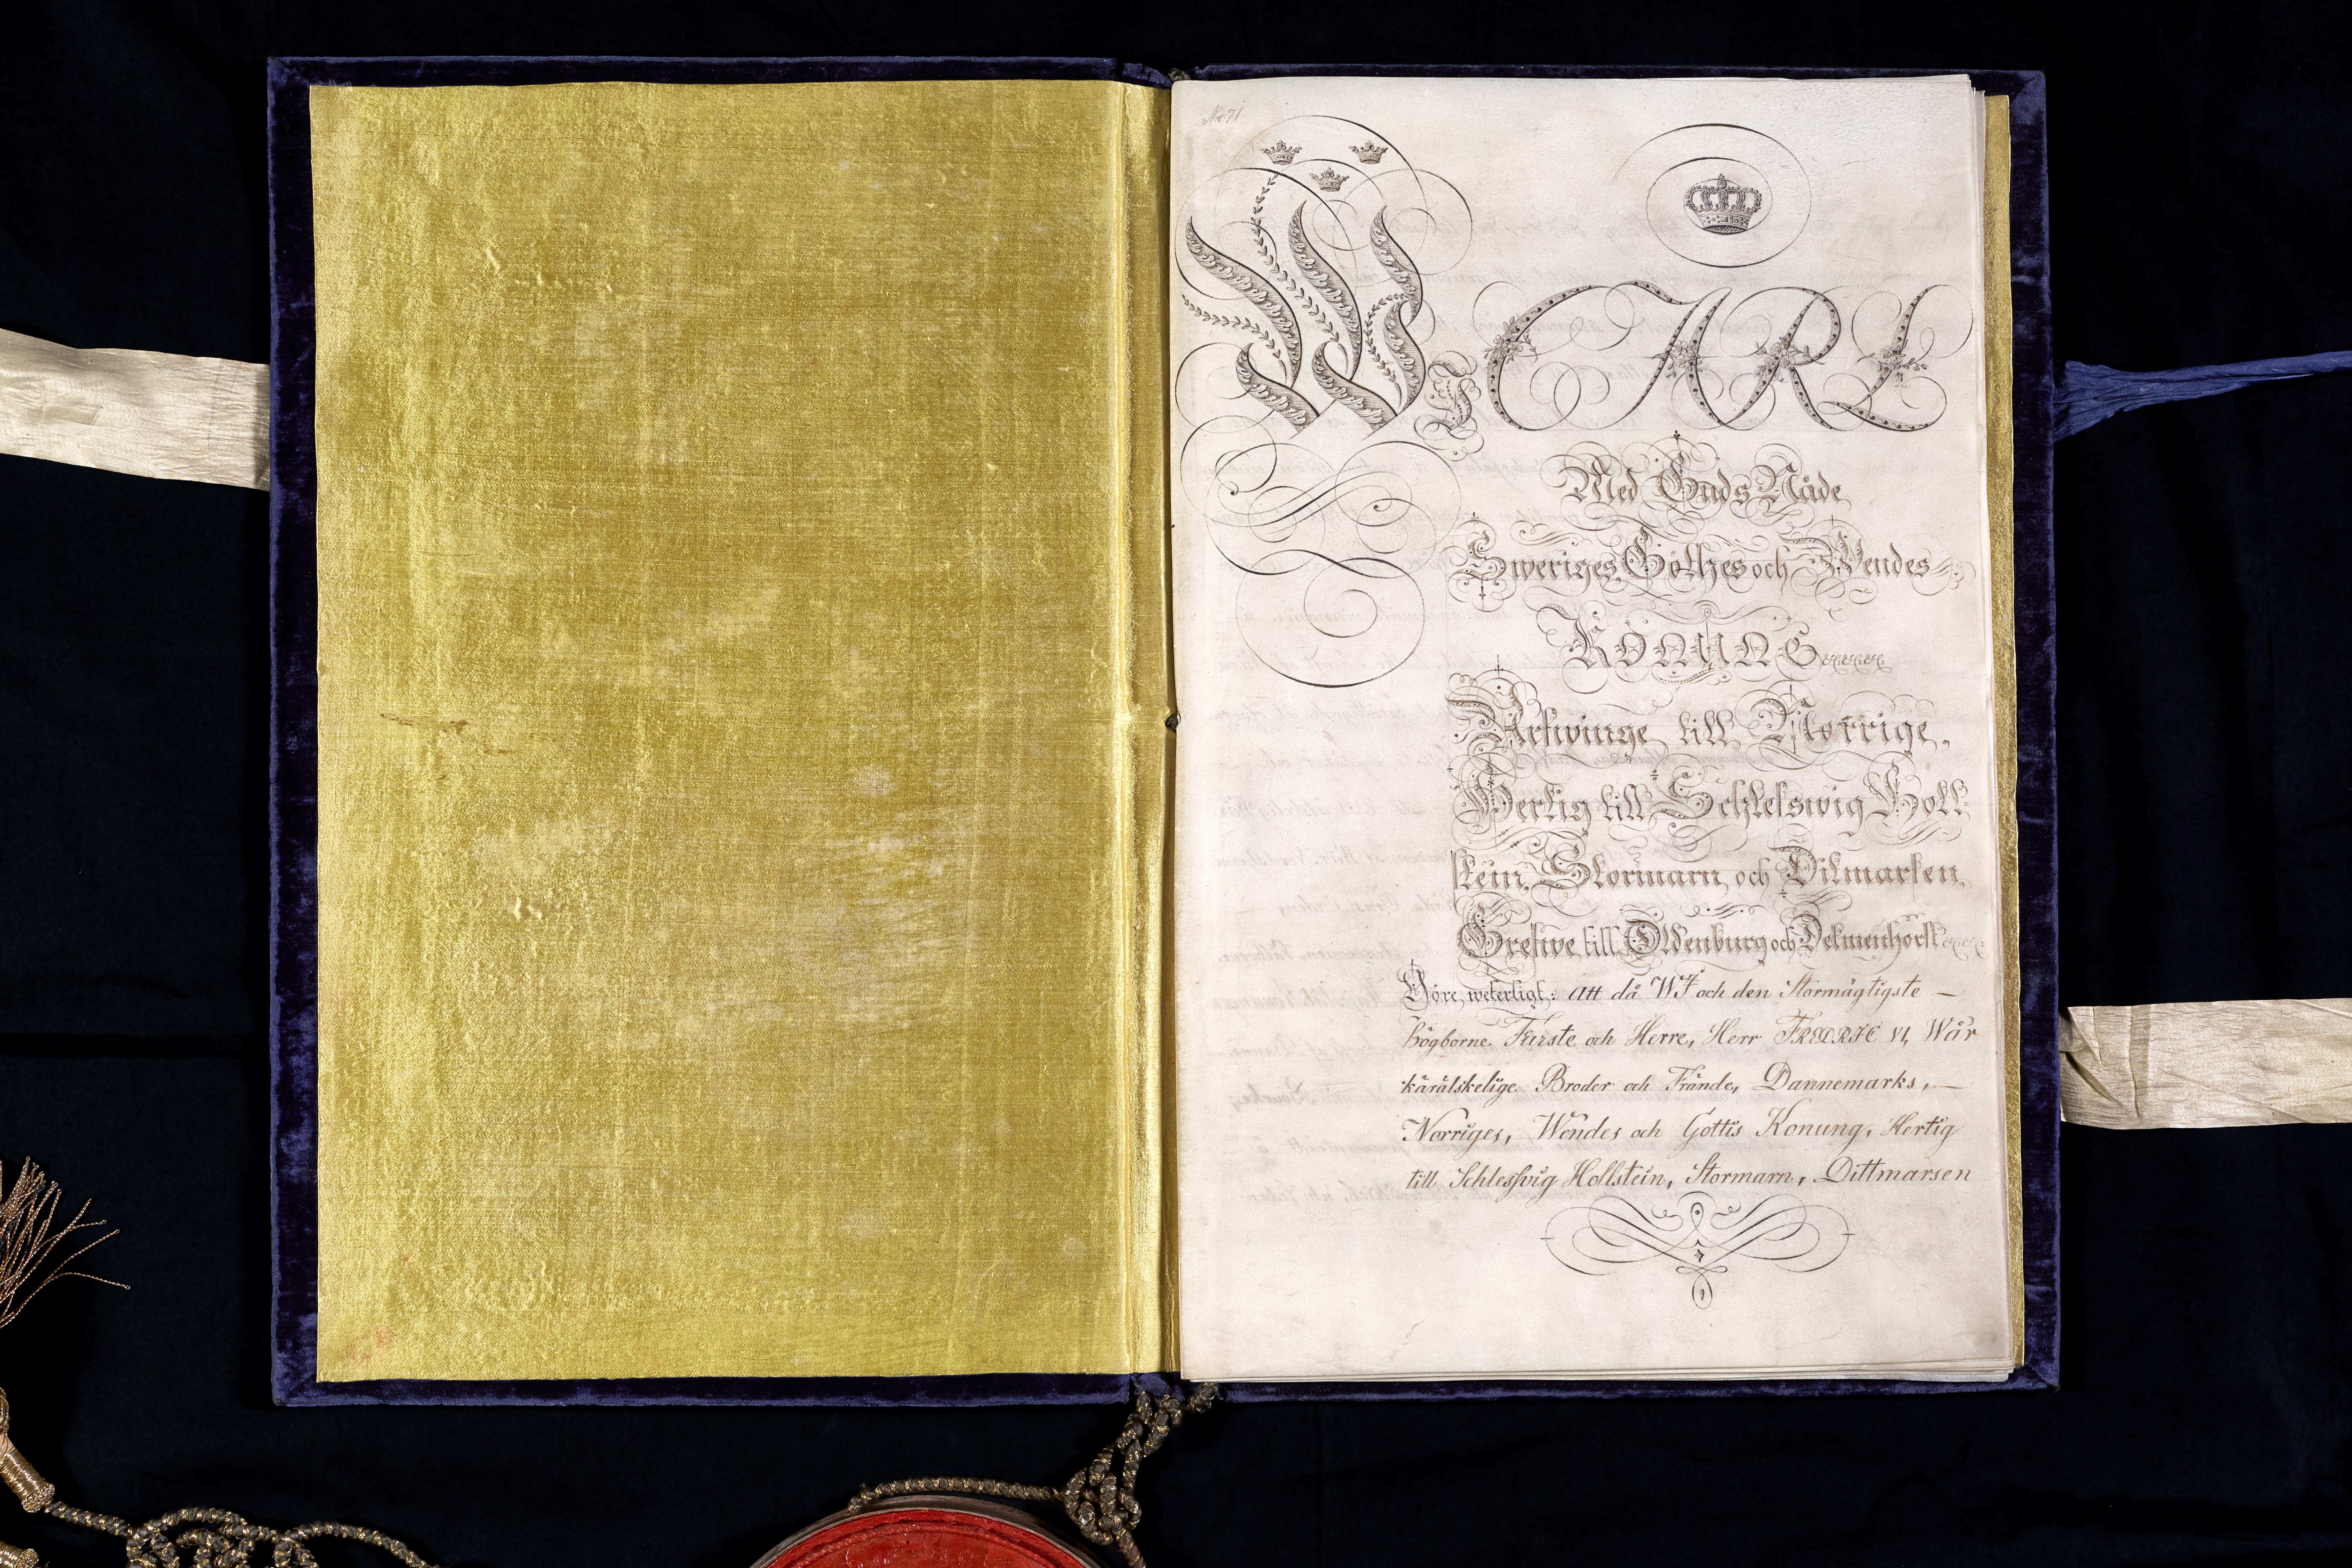 No 71
WJ CARL
Med Guds Nåde
Sweriges, Göthes och Wendes
KONUNG
Arfwinge till Norrige,
Hertig till Schleswig Holl-
stein, Stormarn och Ditmarsen,
Grefwe till Oldenburg och Delmenhorst
Göre weterligt: att då WJ och den Stormägtigste —
högborne Furste och Herre, Herr FREDRIC VI, Wår
kärälskelige Broder och Frände, Dannemarks, —
Norriges, Wendes och Göttis Konung, Hertig
till Schlesswig Hollstein, Stormarn, Dittmarsen